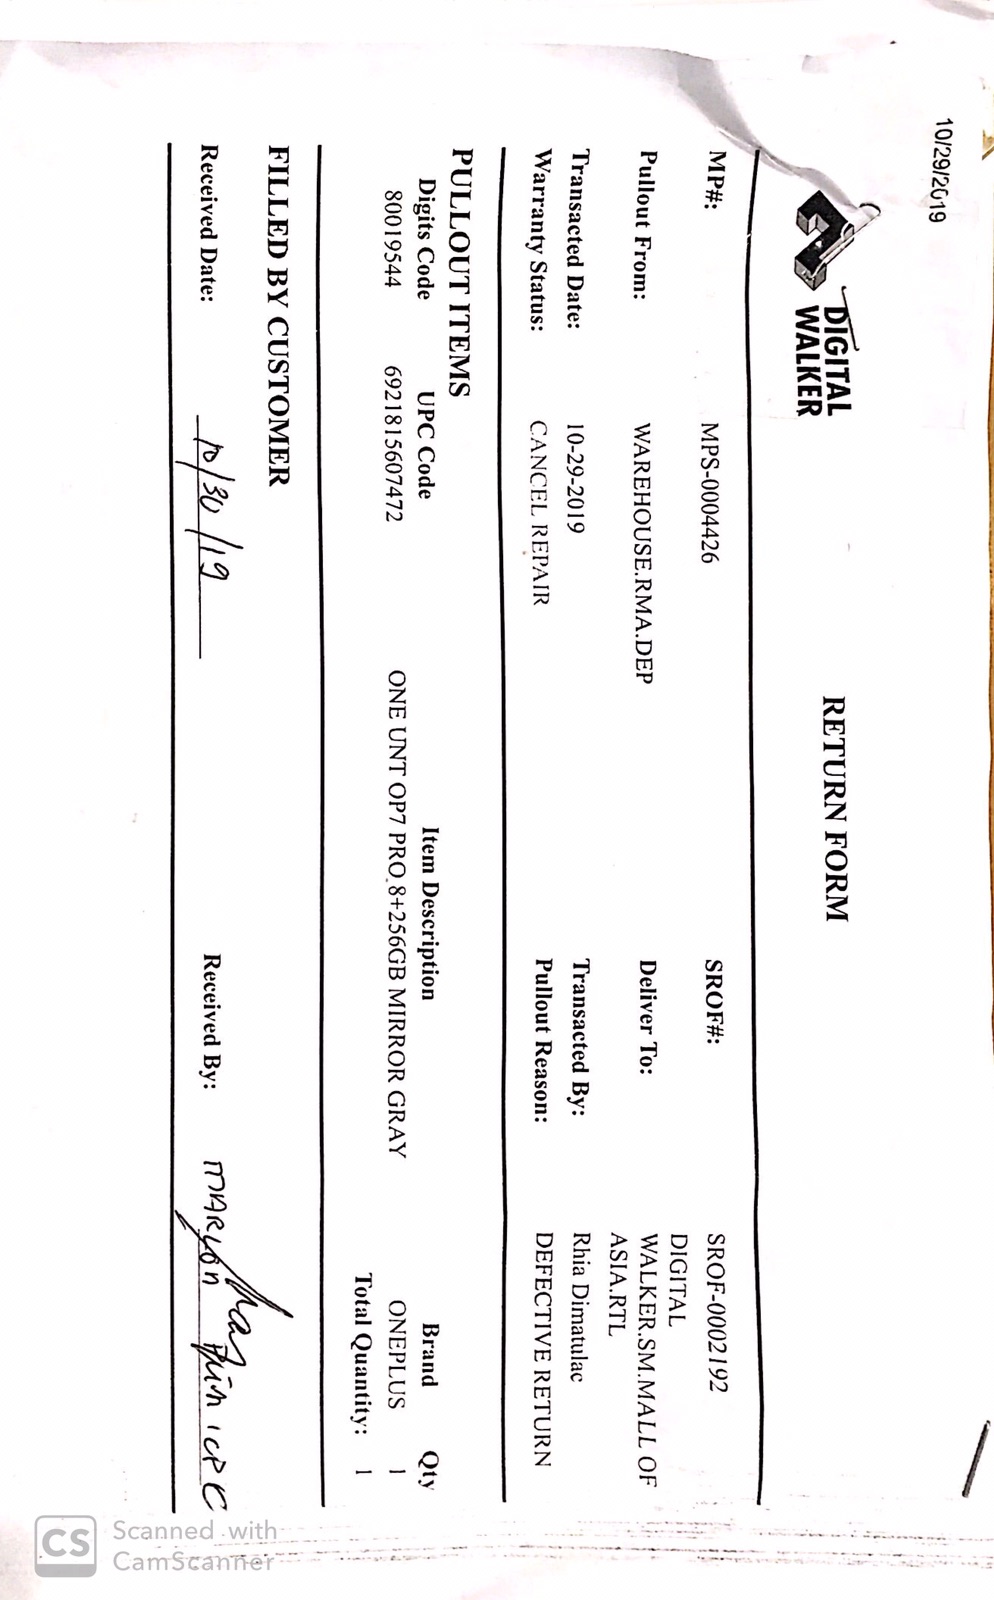 10/29/2019
DIGITAL
WALKER
RETURN FORM
MP#: MPS-0004426 SROF#: SROF-0002192
Pullout From: WAREHOUSE.RMA.DEP Deliver To: DIGITAL
WALKER.SM.MALL OF
ASIA.RTL
Transacted Date: 10-29-2019 Transacted By: Rhia Dimatulac
Warranty Status: CANCEL REPAIR Pullout Reason: DEFECTIVE RETURN
PULLOUT ITEMS
Digits Code UPC Code Item Description Brand Qty
80019544 6921815607472 ONE UNT OP7 PRO 8+256GB MIRROR GRAY ONEPLUS 1
Total Quantity: 1
FILLED BY CUSTOMER
Received Date: 10/30/19 Received By: MARLON
CS Scanned with
CamScanner